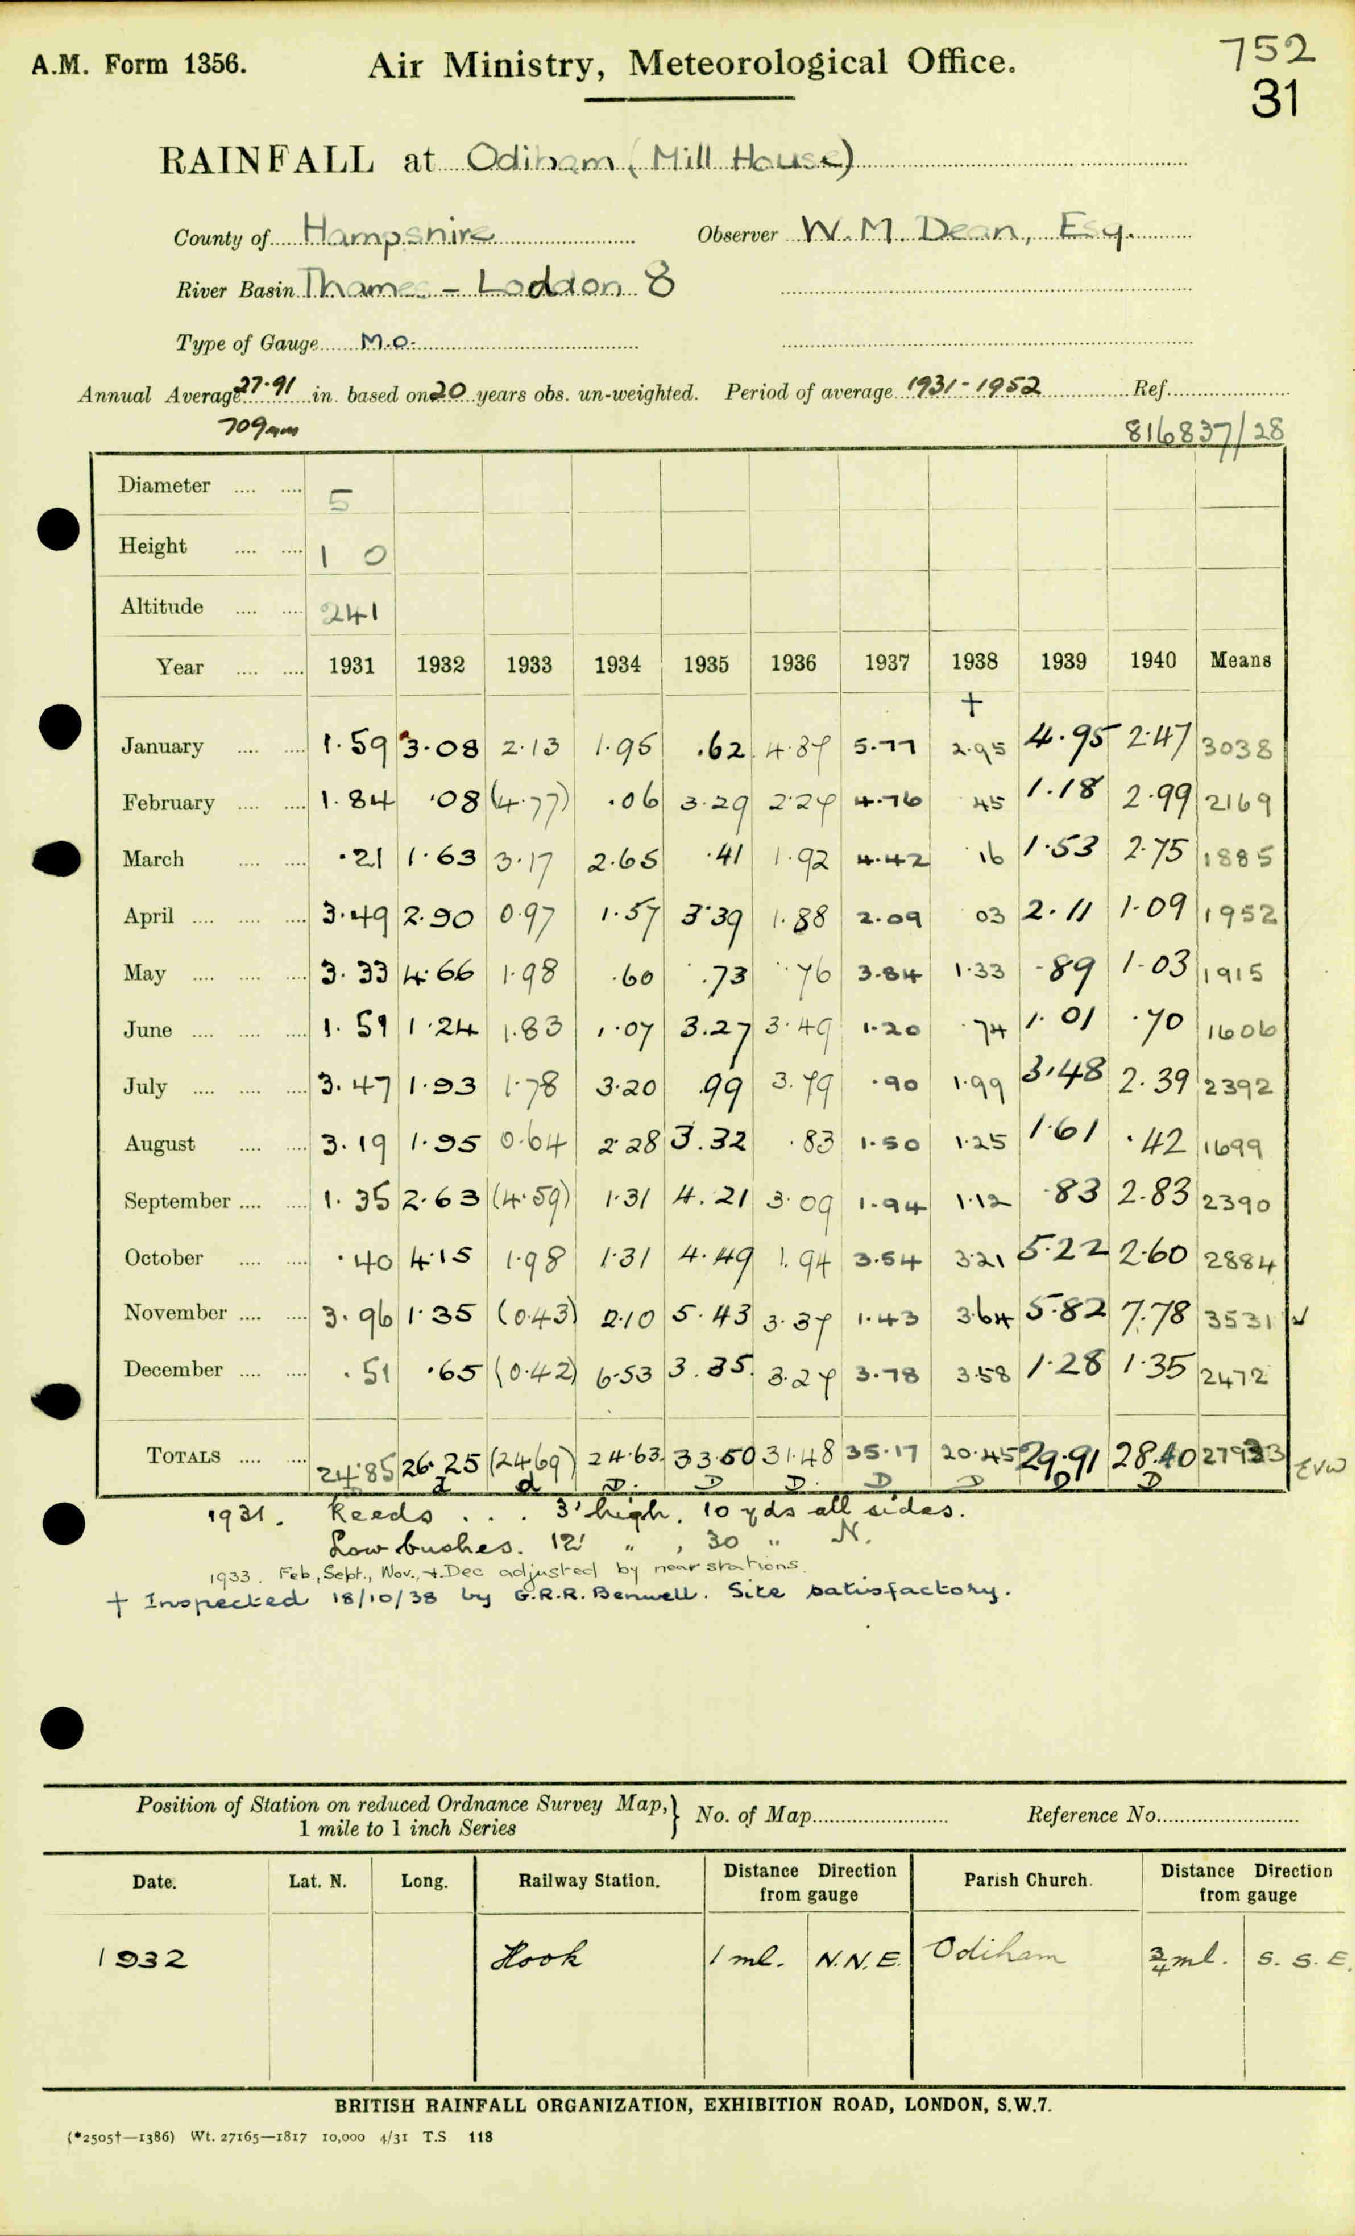 A.M. Form 1356. Air Ministry, Meteorological Office. 752
31
RAINFALL at Odiham (Mill House)
County of Hampshire Observer W.M. Dean, Esq.
River Basin Thames – Loddon 8
Type of Gauge M.O.
Annual Average 27.91 in. based on 20 years obs. un-weighted. Period of average 1931-1952 Ref.
709mm 816837/28
Diameter 5
Height 1 0
Altitude 241
Year 1931 1932 1933 1934 1935 1936 1937 1938 1939 1940 Means
+
January 1.59 3.08 2.13 1.95 .62 4.87 5.77 2.95 4.95 2.47 3038
February 1.84 .08 (4.77) .06 3.29 2.27 4.76 45 1.18 2.99 2169
March .21 1.63 3.17 2.65 .41 1.92 4.42 16 1.53 2.75 1885
April 3.49 2.90 0.97 1.57 3.39 1.88 2.09 03 2.11 1.09 1952
May 3.33 4.66 1.98 .60 .73 .76 3.84 1.33 .89 1.03 1915
June 1.51 1.24 1.83 1.07 3.27 3.49 1.20 .74 1.01 .70 1606
July 3.47 1.93 1.78 3.20 .99 3.79 .90 1.99 3.48 2.39 2392
August 3.19 1.95 0.64 2.28 3.32 .83 1.50 1.25 1.61 .42 1699
September 1.35 2.63 (4.59) 1.31 4.21 3.09 1.94 1.12 .83 2.83 2390
October .40 4.15 1.98 1.31 4.49 1.94 3.54 3.21 5.22 2.60 2884
November 3.96 1.35 (0.43) 2.10 5.43 3.37 1.43 3.64 5.82 7.78 3531 ✓
December .51 .65 (0.42) 6.53 3.35 3.27 3.78 3.58 1.28 1.35 2472
TOTALS 24.85 26.25 (24.69) 24.63 33.50 31.48 35.17 20.45 29.91 28.40 27933 EVW
D d d D. D D. D D D D
1931. Reeds . . . 3' high, 10 yds all sides.
Low bushes. 12' " , 30 " N.
1933. Feb, Sept., Nov., & Dec adjusted by near stations.
+ Inspected 18/10/38 by G.R.R. Benwell. Site satisfactory.
Position of Station on reduced Ordnance Survey Map, } No. of Map Reference No.
1 mile to 1 inch Series
Date. Lat. N. Long. Railway Station. Distance Direction from gauge Parish Church. Distance Direction from gauge
1932 Hook 1 ml. N.N.E. Odiham 3/4 ml. S.S.E.
BRITISH RAINFALL ORGANIZATION, EXHIBITION ROAD, LONDON, S.W.7.
(*2505†—1386) Wt. 27165—1817 10,000 4/31 T.S 118